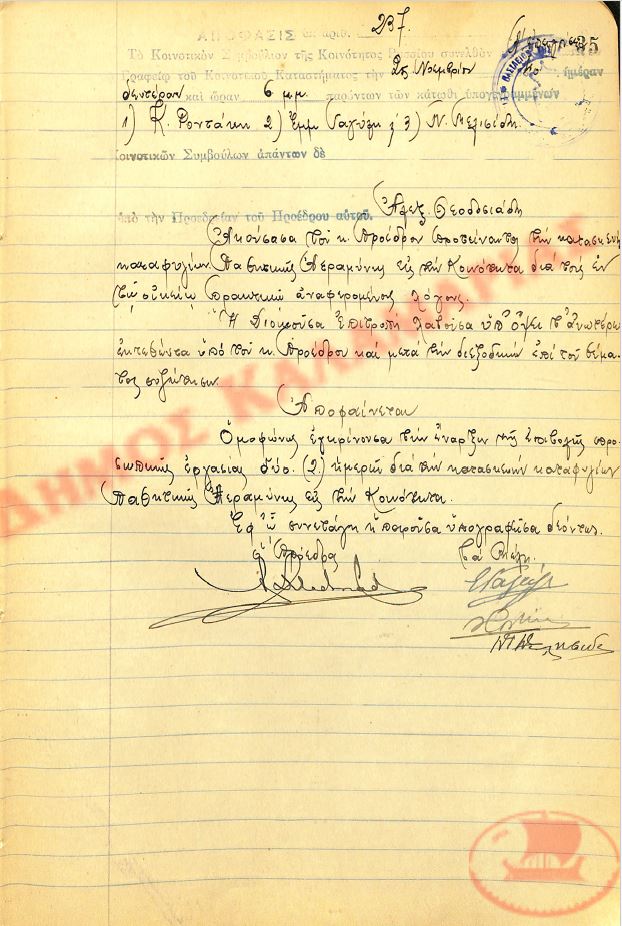 ΑΠΟΦΑΣΙΣ ὑπ' ἀριθ. 237
35
Τὸ Κοινοτικὸν Συμβούλιον τῆς Κοινότητος Ρυσίου συνελθὸν
Γραφείῳ τοῦ Κοινοτικοῦ Καταστήματος τὴν 25 Νοεμβρίου ἡμέραν
Δευτέραν καὶ ὥραν 6 μ.μ. παρόντων τῶν κάτωθι ὑπογεγραμμένων
1) Κ. Ροντάκη 2) Ἐμμ. 3) Ν. Μελισίδη
Κοινοτικῶν Συμβούλων ἁπάντων δὲ
ὑπὸ τὴν Προεδρείαν τοῦ Προέδρου αὐτοῦ. Ἀλεξ. Θεοδοσιάδη
Ἀκούσασα τοῦ κ. Προέδρου προτείναντος τὴν κατασκευὴ
καταφυγίων Παθητικῆς Ἀεραμύνης εἰς τὴν Κοινότητα διὰ τοὺς ἐν
τῷ οἰκείῳ πρακτικῷ ἀναφερομένους λόγους.
Ἡ Διοικοῦσα Ἐπιτροπὴ λαβοῦσα ὑπ' ὄψει τ' ἀνωτέρω
ἐκτεθέντα ὑπὸ τοῦ κ. Προέδρου καὶ μετὰ τὴν διεξοδικὴν ἐπὶ τοῦ θέμα-
τος συζήτησιν.
Ἀποφαίνεται
Ὁμοφώνως ἐγκρίνουσα τὴν ἔναρξιν τῆς ἐπιβολῆς προ-
σωπικῆς ἐργασίας δύο (2) ἡμερῶν διὰ τὴν κατασκευὴν καταφυγίων
Παθητικῆς Ἀεραμύνης εἰς τὴν Κοινότητα.
Ἐφ' ᾧ συνετάγη ἡ παροῦσα ὑπογραφεῖσα δεόντως.
Ὁ Πρόεδρος Τὰ Μέλη.
ΔΗΜΟΣ ΚΑΛΑΜΑΡΙΑΣ